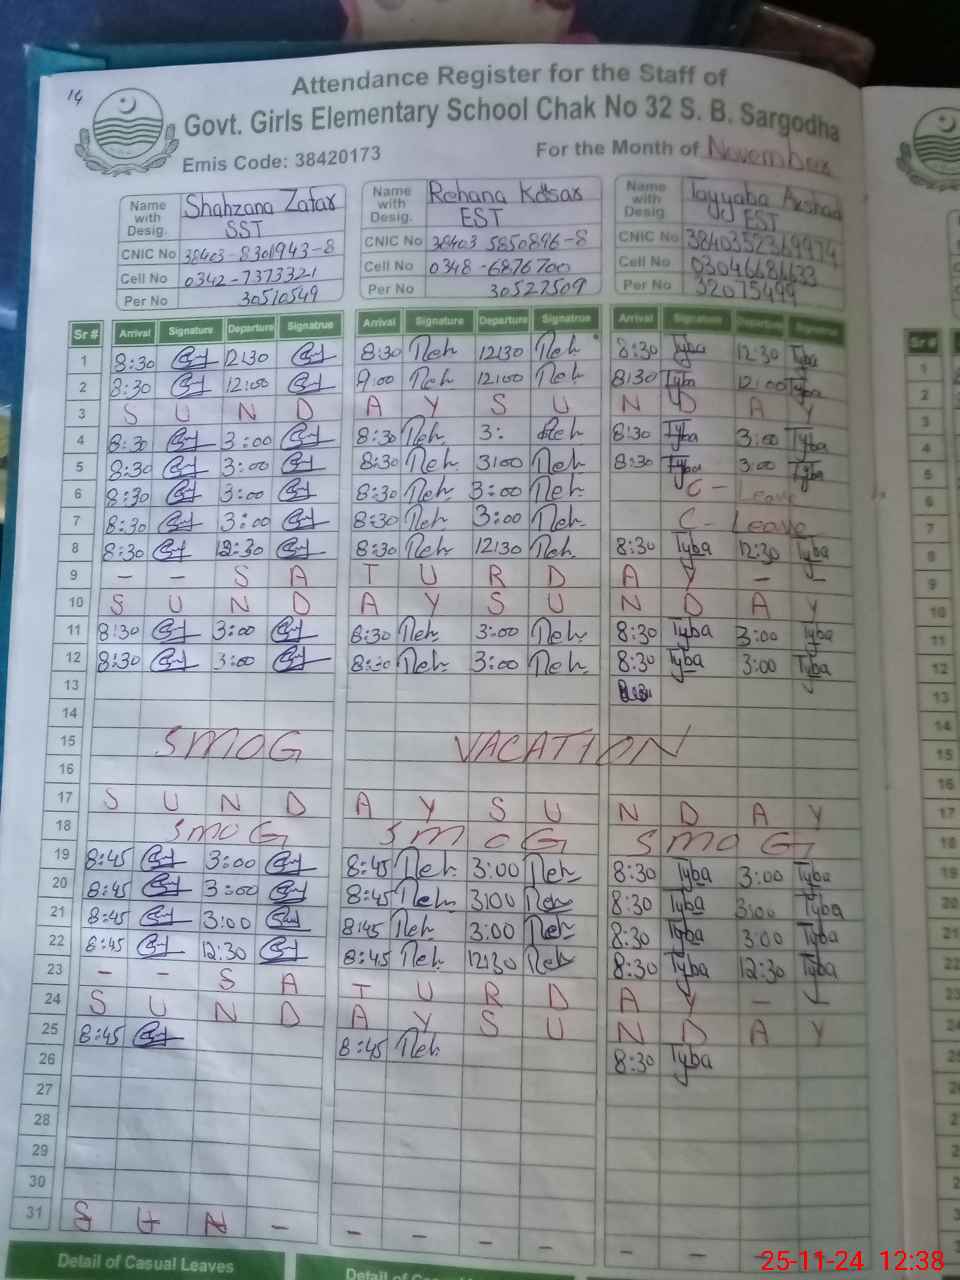 14
Attendance Register for the Staff of
Govt. Girls Elementary School Chak No 32 S. B. Sargodha
Emis Code: 38420173 For the Month of November
Name with Desig. Shahzana Zafar SST
CNIC No 38403-8301943-8
Cell No 0342-7373321
Per No 30510549
Name with Desig. Rehana Kausar EST
CNIC No 38403 5850896-8
Cell No 0348-6876700
Per No 30527509
Name with Desig. Tayyaba Arshad EST
CNIC No 3840352369974
Cell No
Per No 32075499
Sr # Arrival Signature Departure Signatrue Arrival Signature Departure Signatrue Arrival Signature Departure
1 8:30 12:30 8:30 Reh 12:30 Reh 8:30 Tyba 12:30 Tyba
2 8:30 12:00 9:00 Reh 12:00 Reh 8:30 Tyba 12:00 Tyba
3 S U N D A Y S U N D A Y
4 8:30 3:00 8:30 Reh 3: Reh 8:30 Tyba 3:00 Tyba
5 8:30 3:00 8:30 Reh 3:00 Reh 8:30 Tyba 3:00 Tyba
6 8:30 3:00 8:30 Reh 3:00 Reh C - Leave
7 8:30 3:00 8:30 Reh 3:00 Reh C - Leave
8 8:30 12:30 8:30 Reh 12:30 Reh 8:30 Tyba 12:30 Tyba
9 - - S A T U R D A Y - -
10 S U N D A Y S U N D A Y
11 8:30 3:00 8:30 Reh 3:00 Reh 8:30 Tyba 3:00 Tyba
12 8:30 3:00 8:30 Reh 3:00 Reh 8:30 Tyba 3:00 Tyba
13
14
15 SMOG VACATION
16
17 S U N D A Y S U N D A Y
18 SMOG SMOG SMOG
19 8:45 3:00 8:45 Reh 3:00 Reh 8:30 Tyba 3:00 Tyba
20 8:45 3:00 8:45 Reh 3:00 Reh 8:30 Tyba 3:00 Tyba
21 8:45 3:00 8:45 Reh 3:00 Reh 8:30 Tyba 3:00 Tyba
22 8:45 12:30 8:45 Reh 12:30 Reh 8:30 Tyba 12:30 Tyba
23 - - S A T U R D A Y - -
24 S U N D A Y S U N D A Y
25 8:45 8:45 Reh 8:30 Tyba
26
27
28
29
30
31 S U N - - - - - - -
Detail of Casual Leaves Detail of Casual Leaves
25-11-24 12:38